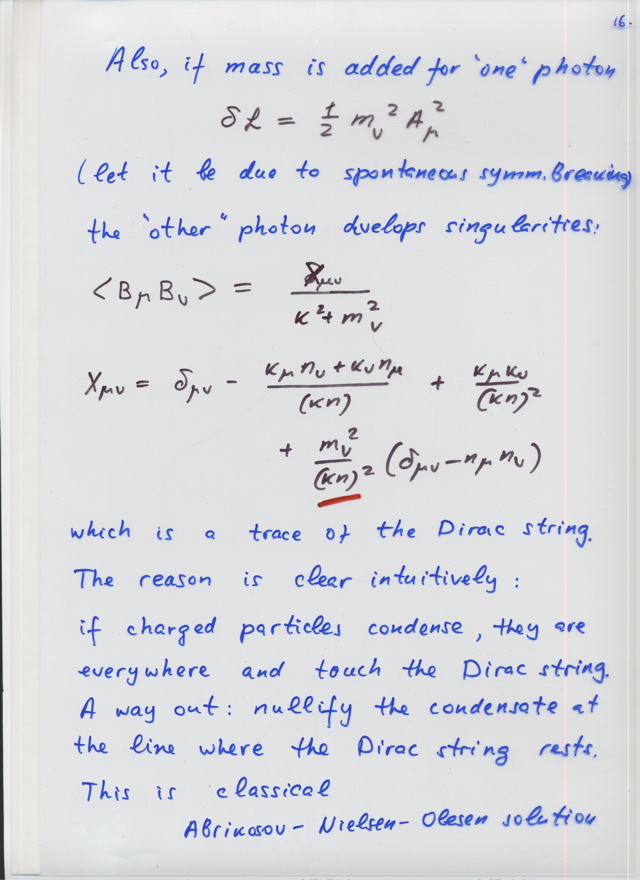 16.
Also, if mass is added for "one" photon
δL = 1/2 m_v^2 A_μ^2
(let it be due to spontaneous symm. Breaking)
the "other" photon dvelops singularities:
<B_μ B_ν> = X_μν / (k^2 + m_v^2)
X_μν = δ_μν - (k_μ n_ν + k_ν n_μ)/(kn) + k_μ k_ν/(kn)^2
+ m_v^2/(kn)^2 (δ_μν - n_μ n_ν)
which is a trace of the Dirac string.
The reason is clear intuitively :
if charged particles condense, they are
everywhere and touch the Dirac string.
A way out: nullify the condensate at
the line where the Dirac string rests.
This is classical
Abrikosov - Nielsen - Olesen solution